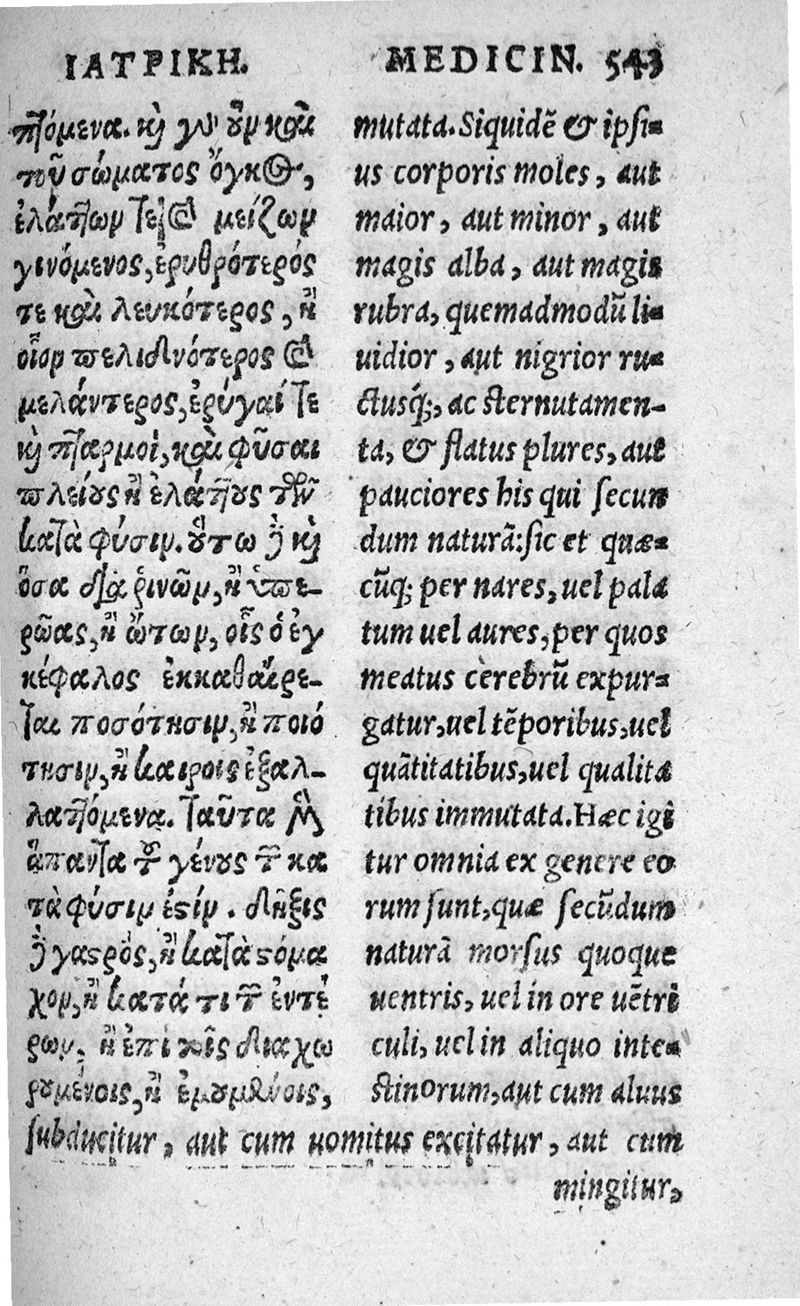 ΙΑΤΡΙΚΗ.
πτόμενα. καὶ γὰρ οὖν καὶ
τοῦ σώματος ὄγκος,
ἐλάττων τε καὶ μείζων
γινόμενος, ἐρυθρότερός
τε καὶ λευκότερος, ἢ
οἷον πελιδνότερος καὶ
μελάντερος, ἐρυγαί τε
καὶ πταρμοὶ, καὶ φῦσαι
πλείους ἢ ἐλάττους τῶν
κατὰ φύσιν. οὕτω δὲ καὶ
ὅσα διὰ ῥινῶν, ἢ ὑπε-
ρῴας, ἢ ὤτων, οἷς ὁ ἐγ
κέφαλος ἐκκαθαίρε-
ται ποσότησιν, ἢ ποιό
τησιν, ἢ καιροῖς ἐξαλ-
λαττόμενα. ταῦτα μὲν
ἅπαντα τοῦ γένους τῶν κα
τὰ φύσιν ἐστίν. δῆξις
δὲ γαστρὸς, ἢ κατὰ στόμα
χον, ἢ κατά τι τῶν ἐντέ
ρων, ἢ ἐπὶ τοῖς διαχω
ρουμένοις, ἢ ἐμουμένοις,
MEDICIN. 543
mutata. Siquidē & ipsi-
us corporis moles, aut
maior, aut minor, aut
magis alba, aut magis
rubra, quemadmodū li-
uidior, aut nigrior ru-
ctusq́;, ac sternutamen-
ta, & flatus plures, aut
pauciores his qui secun
dum naturā: sic et quæ-
cūq; per nares, uel pala
tum uel aures, per quos
meatus cerebrū expur-
gatur, uel tēporibus, uel
quātitatibus, uel qualita
tibus immutata. Hæc igi
tur omnia ex genere eo
rum sunt, quæ secūdum
naturā morsus quoque
uentris, uel in ore uētri
culi, uel in aliquo inte-
stinorum, aut cum aluus
subducitur, aut cum uomitus excitatur, aut cum
mingitur,